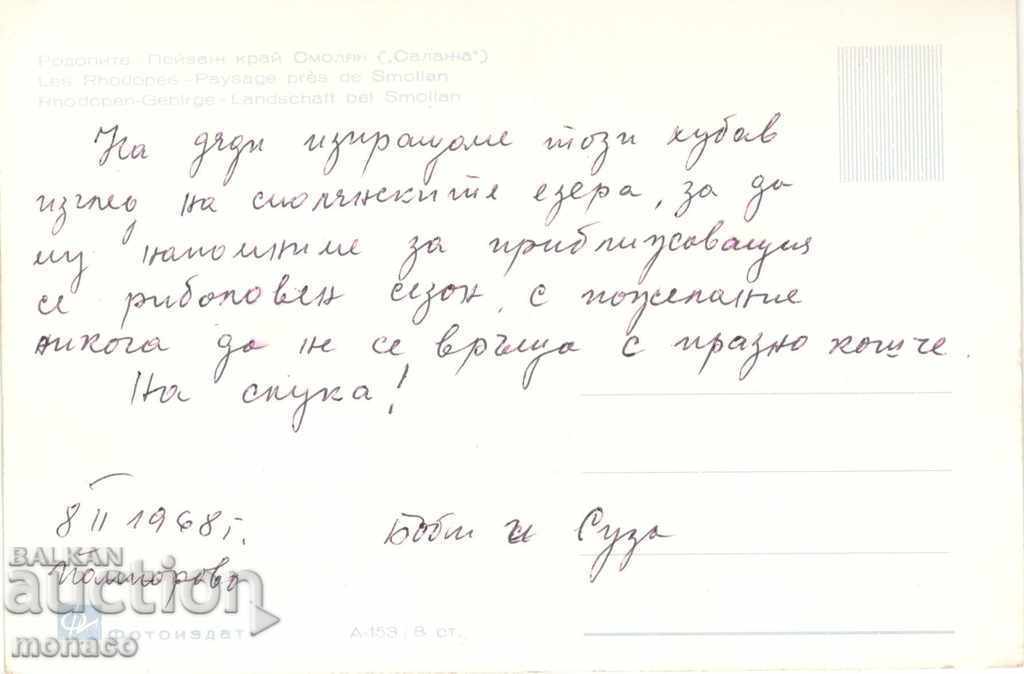 Родопите - Пейзаж край Смолян („Салажа“)
Les Rhodopes - Paysage près de Smolian
Rhodopen-Gebirge - Landschaft bei Smolian
На дяди изпращаме този хубав
изглед на смолянските езера, за да
му напомниме за приближаващия
се риболовен сезон, с пожелание
никога да не се връща с празно кошче.
На слука!
8 II 1968 г.
Пампорово
Боби и Суза
BALKAN
auction
monaco
ФОТОИЗДАТ
А-153 8 ст.